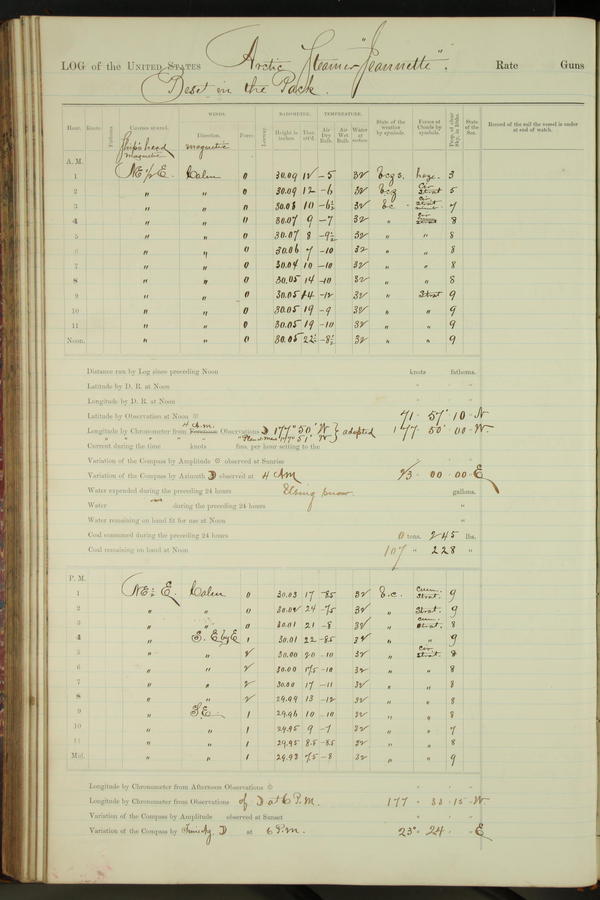 LOG of the UNITED STATES Arctic Steamer "Jeannette". Rate Guns
Beset in the Pack.
WINDS. BAROMETER. TEMPERATURE.
Hour. Knots. Fathoms. Courses steered. Direction. Force. Leeway. Height in inches. Ther. att'd. Air Dry Bulb. Air Wet Bulb. Water at surface. State of the weather by symbols. Forms of Clouds by symbols. Prop. of clear Sky, in 10ths. State of the Sea. Record of the sail the vessel is under at end of watch.
Ship's head magnetic magnetic
A. M.
1 NE ½ E. Calm 0 30.09 12 -5 32 b.c.z.s. haze. 3
2 " " 0 30.09 12 -6 32 bcz Cir Strat 5
3 " " 0 30.08 10 -6½ 32 bc. 7
4 " " 0 30.07 9 -7 32 " 8
5 " " 0 30.07 8 -9½ 32 " " 8
6 " " 0 30.06 7 -10 32 " " 8
7 " " 0 30.04 10 -10 32 " " 8
8 " " 0 30.05 14 -10 32 " " 8
9 " " 0 30.05 14 -12 32 " Strat 9
10 " " 0 30.05 19 -9 32 " " 9
11 " " 0 30.05 19 -10 32 " " 9
Noon. " " 0 30.05 22½ -8½ 32 " " 9
Distance run by Log since preceding Noon knots fathoms.
Latitude by D. R. at Noon
Longitude by D. R. at Noon
Latitude by Observation at Noon 71 · 57 · 10 · N
Longitude by Chronometer from 4 A.m. Observations D 177° 50' W } adopted 177 · 50 · 00 · W
" " " " " 177° 51' W
Current during the time knots fms. per hour setting to the
Variation of the Compass by Amplitude observed at Sunrise
Variation of the Compass by Azimuth D observed at 4 AM 23 · 00 · 00 · E
Water expended during the preceding 24 hours Using snow. gallons.
Water during the preceding 24 hours "
Water remaining on hand fit for use at Noon "
Coal consumed during the preceding 24 hours 0 tons. 245 lbs.
Coal remaining on hand at Noon 107 " 228 "
P. M.
1 NE ½ E. Calm 0 30.03 17 -8.5 32 b.c. Cum. Strat. 9
2 " " 0 30.02 24 -7.5 32 " Strat. 9
3 " " 0 30.01 21 -8 32 " Cum. Strat. 8
4 " S. E by E 1 30.01 22 -8.5 32 " " 9
5 " " 2 30.00 20 -10 32 " Cir. Strat. 8
6 " " 2 30.00 17.5 -10 32 " " 8
7 " " 2 30.00 17 -11 32 " " 8
8 " " 2 29.99 13 -12 32 " " 8
9 " SE 1 29.96 10 -10 32 " " 8
10 " " 1 29.95 9 -7 32 " " 7
11 " " 1 29.95 8.5 -8.5 32 " " 8
Mid. " " 1 29.93 7.5 -8 32 " " 9
Longitude by Chronometer from Afternoon Observations
Longitude by Chronometer from Observations of D at 6 P.m. 177 · 33 · 15 · W
Variation of the Compass by Amplitude observed at Sunset
Variation of the Compass by D at 6 P.m. 23° · 24 · E